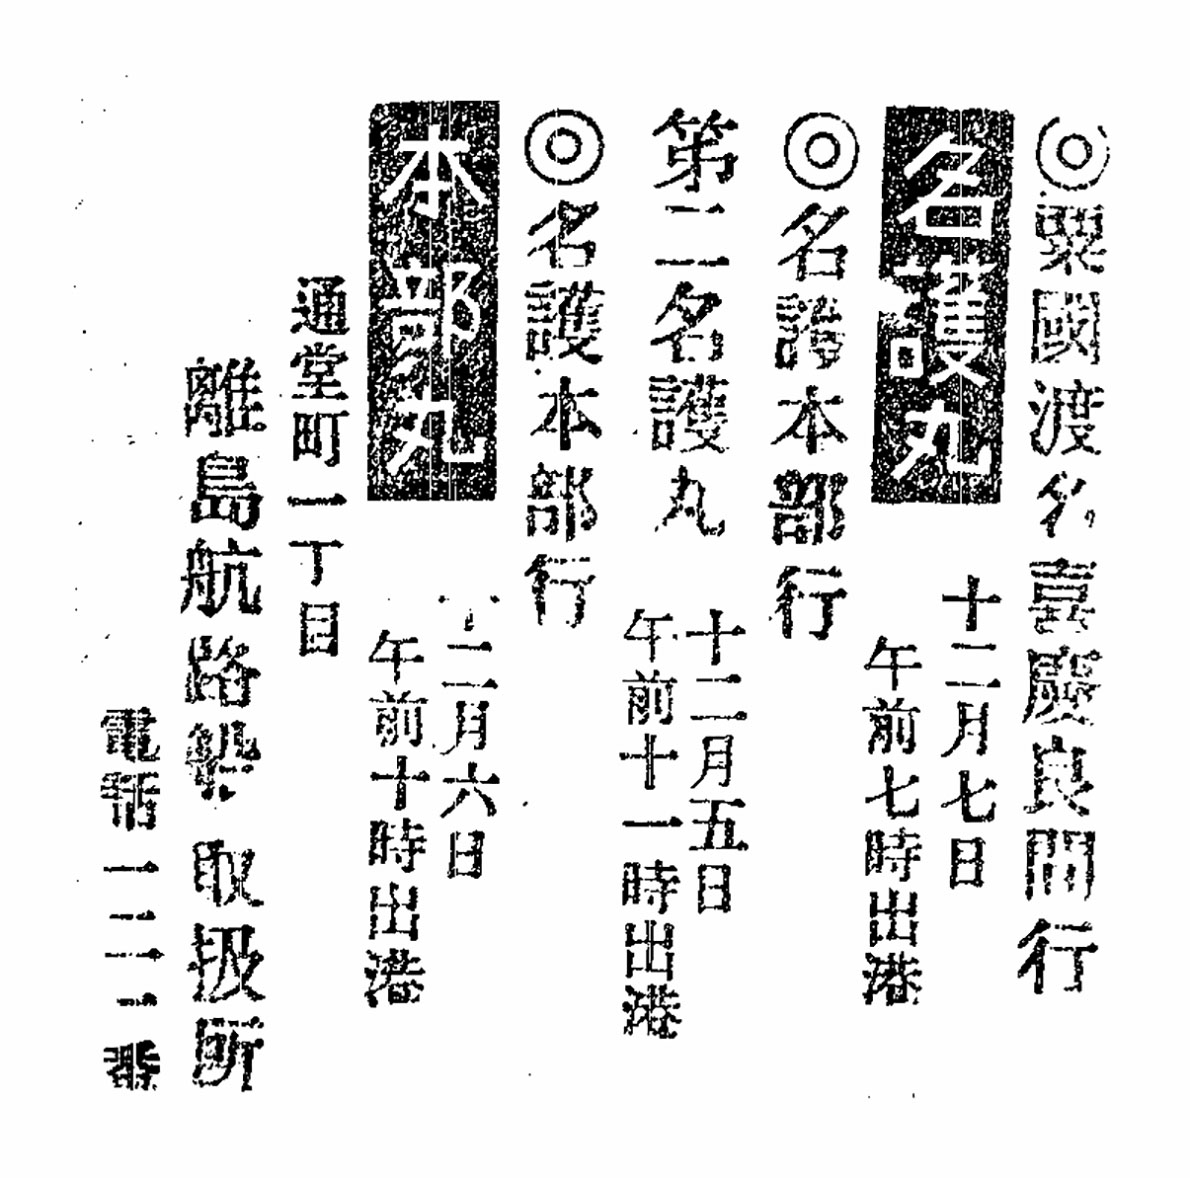 ◎粟國渡名喜慶良間行
名護丸
十二月七日
午前七時出港
◎名護本部行
第二名護丸
十二月五日
午前十一時出港
◎名護本部行
本部丸
十二月六日
午前十時出港
通堂町一丁目
離島航路 取扱所
電話 番